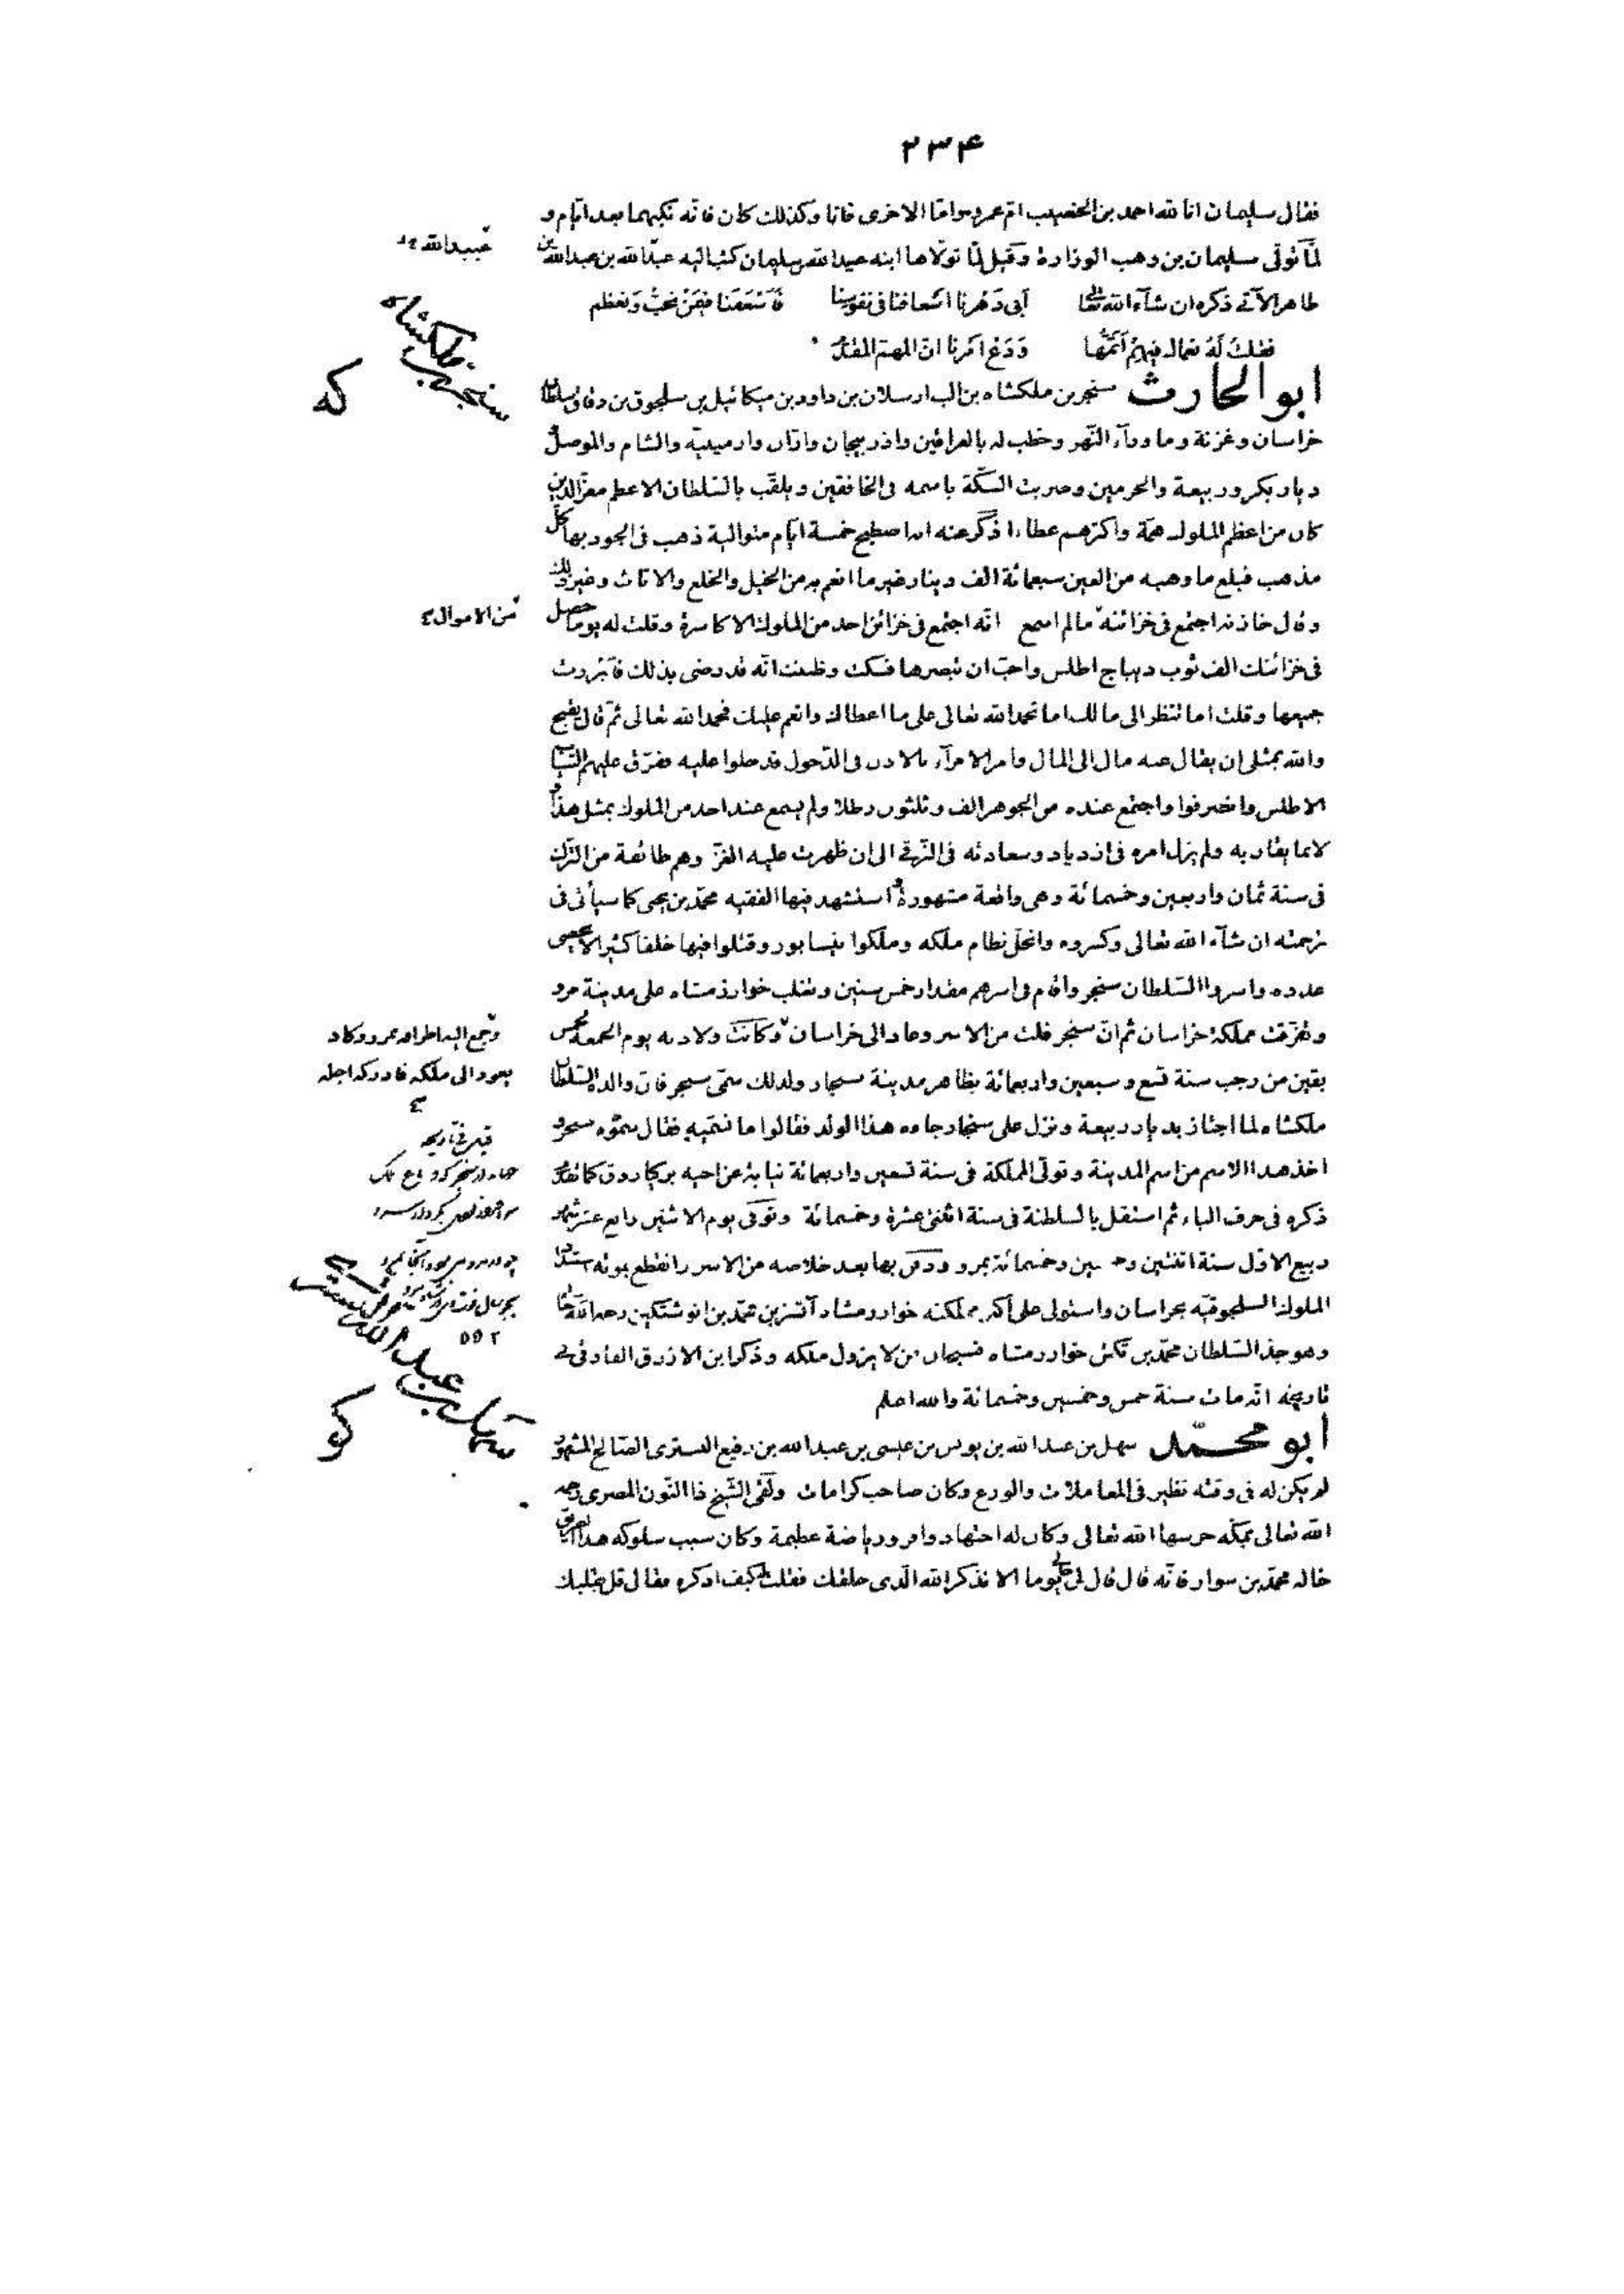 ٢٣۴
فقال سليمان انا لله احمد بن الخصيب ام عمرو واما الاخرى فانا وكذلك كان فانه نكبهما بعد ايام و
لمّا تولّى سليمان بن وهب الوزارة وقيل لمّا تولّاها ابنه عبيد الله بن سليمان كتب اليه عبد الله بن عبد الله بن
عبيد الله
طاهر الآتى ذكره ان شآء الله تعالى ابى دهرنا اسعافنا فى نفوسنا فاسعفنا فيمن نحبّ ونعظم
فقلت له نعماك فيهم اتمّها ودع امرنا ان المهم المقدّم
ابو الحارث سنجر بن ملكشاه بن الب ارسلان بن داود بن ميكائيل بن سلجوق بن دقاق سلطان
سنجر بن ملكشاه
كه
خراسان وغزنة وما ورآء النّهر وخطب له بالعراقين واذربيجان وارّان وارمينيّه والشام والموصل و
ديار بكر وربيعة والحرمين وضربت السكّة باسمه فى الخافقين ويلقّب بالسّلطان الاعظم معزّ الدين
كان من اعظم الملوك همّة واكثرهم عطاءا ذكر عنه انه اصطبح خمسة ايّام متوالية ذهب فى الجود بها كلّ
مذهب فبلغ ما وهبه من العين سبعمائة الف دينار غير ما انعم به من الخيل والخلع والاثاث وغير ذلك
وقال خازنه اجتمع فى خزائنه ما لم اسمع انه اجتمع فى خزائن احد من الملوك الاكاسرة وقلت له يوما حصل
من الاموال
فى خزائنك الف ثوب ديباج اطلس واحبّ ان تبصرها فسكت وظننت انّه قد رضى بذلك فابرزت
جميعها وقلت اما تنظر الى مالك اما تحمد الله تعالى على ما اعطاك وانعم عليك فحمد الله تعالى ثمّ قال يقبح
والله بمثلى ان يقال عنه مال الى المال وامر الامرآء بالاذن فى الدّخول فدخلوا عليه ففرّق عليهم الثياب
الاطلس وانصرفوا واجتمع عنده من الجوهر الف وثلثون رطلا ولم يسمع عند احد من الملوك بمثل هذا و
لا بما يقاربه ولم يزل امره فى ازدياد وسعادته فى الترقّى الى ان ظهرت عليه الغزّ وهم طائفة من الترك
فى سنة ثمان واربعين وخمسمائة وهى واقعة مشهورة استشهد فيها الفقيه محمّد بن يحيى كما سيأتى فى
ترجمته ان شآء الله تعالى وكسروه وانحلّ نظام ملكه وملكوا نيسابور وقتلوا فيها خلقا كثيرا لا يحصى
عدده واسروا السّلطان سنجر واقام فى اسرهم مقدار خمس سنين وتغلب خوارزمشاه على مدينة مرو
وتفرّقت مملكة خراسان ثم انّ سنجر فلت من الاسر وعاد الى خراسان وكانت ولادته يوم الجمعة لخمس
وجمع اليه اطرافه بمرو وكاد
يعود الى ملكه فادركه اجله
بقين من رجب سنة تسع وسبعين واربعمائة بظاهر مدينة سنجار ولذلك سمّى سنجر فان والده السّلطان
ملكشاه لما اجتاز بديار ربيعة ونزل على سنجار جاءه هذا الولد فقالوا ما نسمّيه فقال سمّوه سنجر و
قيل فى تاريخه
اخذ هذا الاسم من اسم المدينة وتولّى المملكة فى سنة تسعين واربعمائة نيابة عن اخيه بركياروق كما تقدّم
ذكره فى حرف الباء ثم استقل بالسلطنة فى سنة اثنتى عشرة وخمسمائة وتوفّى يوم الاثنين رابع عشر شهر
ربيع الاول سنة اثنتين وخمسين وخمسمائة بمرو ودفن بها بعد خلاصه من الاسر وانقطع بموته استبداد
الملوك السلجوقيّه بخراسان واستولى على اكثر مملكته خوارزمشاه آتسز بن محمّد بن انوشتكين رحمه الله تعالى
٥٥٢
وهو جدّ السّلطان محمّد بن تكش خوارزمشاه فسبحان من لا يزول ملكه وذكر ابن الازرق الفارقى فى
تاريخه انّه مات سنة خمس وخمسين وخمسمائة والله اعلم
ابو محمّد سهل بن عبد الله بن يونس بن عيسى بن عبد الله بن رفيع التسترى الصّالح المشهور
سهل بن عبد الله التسترى
كو
لم يكن له فى وقته نظير فى المعاملات والورع وكان صاحب كرامات ولقى الشّيخ ذا النّون المصرى رحمه
الله تعالى بمكّه حرسها الله تعالى وكان له اجتهاد وافر ورياضة عظيمة وكان سبب سلوكه هذا الطريق
خاله محمّد بن سوار فانّه قال قال لى خالى يوما الا تذكر الله الّذى خلقك فقلت له كيف اذكره فقال قل بقلبك